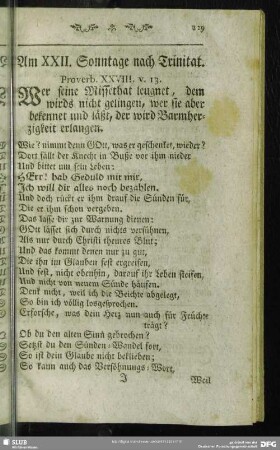 219
Am XXII. Sonntage nach Trinitat.
Proverb. XXVIII. v. 13.
Wer seine Missethat leugnet, dem
wirds nicht gelingen, wer sie aber
bekennet und läßt, der wird Barmher-
zigkeit erlangen.
Wie? nimmt denn GOtt, was er geschenket, wieder?
Dort fällt der Knecht in Busse vor ihm nieder
Und bittet um sein Leben:
HErr! hab Geduld mit mir,
Ich will dir alles noch bezahlen.
Und doch rückt er ihm drauf die Sünden für,
Die er ihm schon vergeben.
Das lasse dir zur Warnung dienen:
GOtt lässet sich durch nichts versühnen,
Als nur durch Christi theures Blut;
Und das kommt denen nur zu gut,
Die ihn im Glauben fest ergreifen,
Und fest, nicht obenhin, darauf ihr Leben steifen,
Und nicht von neuem Sünde häufen.
Denk nicht, weil ich die Beichte abgelegt,
So bin ich völlig losgesprochen.
Erforsche, was dein Herz nun auch für Früchte
trägt?
Ob du den alten Sinn gebrochen?
Setzst du den Sünden-Wandel fort,
So ist dein Glaube nicht beklieben;
So kann auch das Versöhnungs-Wort,
J Weil
SLUB
DFG